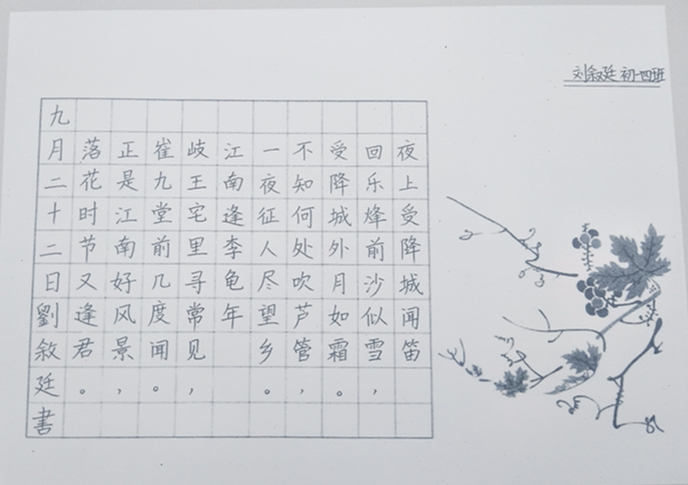 刘叙廷 初一四班
夜上受降城闻笛
回乐烽前沙似雪，
受降城外月如霜。
不知何处吹芦管，
一夜征人尽望乡。
江南逢李龟年
岐王宅里寻常见，
崔九堂前几度闻。
正是江南好风景，
落花时节又逢君。
九月二十二日劉叙廷書